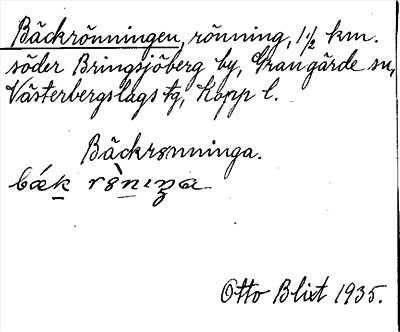 Bäckrönningen, rönning, 1 1/2 km.
söder Bringsjöberg by, Grangärde sn,
Västerbergslags tg, Kopp l.
Bäckrønninga.
Otto Blixt 1935.